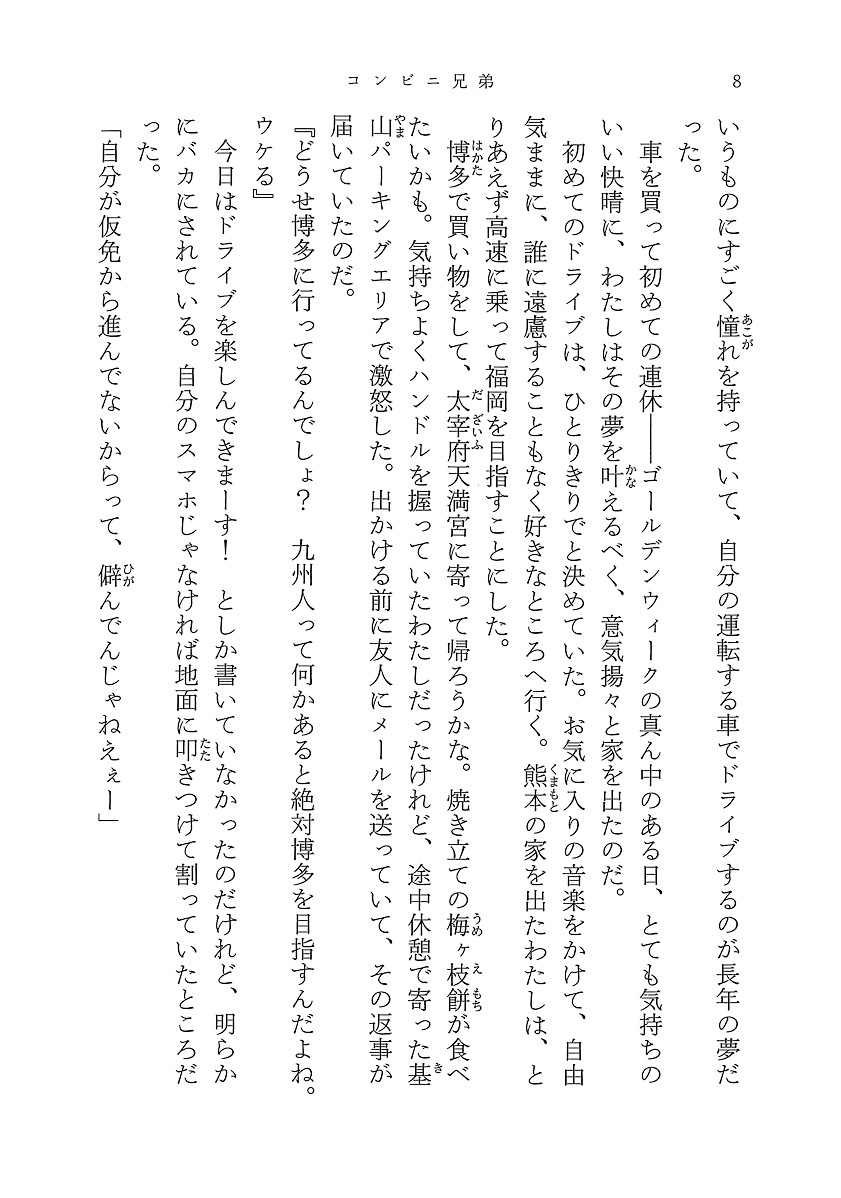 コンビニ兄弟
8
いうものにすごく憧れを持っていて、自分の運転する車でドライブするのが長年の夢だ
った。
　車を買って初めての連休――ゴールデンウィークの真ん中のある日、とても気持ちの
いい快晴に、わたしはその夢を叶えるべく、意気揚々と家を出たのだ。
　初めてのドライブは、ひとりきりでと決めていた。お気に入りの音楽をかけて、自由
気ままに、誰に遠慮することもなく好きなところへ行く。熊本の家を出たわたしは、と
りあえず高速に乗って福岡を目指すことにした。
　博多で買い物をして、太宰府天満宮に寄って帰ろうかな。焼き立ての梅ヶ枝餅が食べ
たいかも。気持ちよくハンドルを握っていたわたしだったけれど、途中休憩で寄った基
山パーキングエリアで激怒した。出かける前に友人にメールを送っていて、その返事が
届いていたのだ。
『どうせ博多に行ってるんでしょ？　九州人って何かあると絶対博多を目指すんだよね。
ウケる』
　今日はドライブを楽しんできまーす！　としか書いていなかったのだけれど、明らか
にバカにされている。自分のスマホじゃなければ地面に叩きつけて割っていたところだ
った。
「自分が仮免から進んでないからって、僻んでんじゃねえぇー」